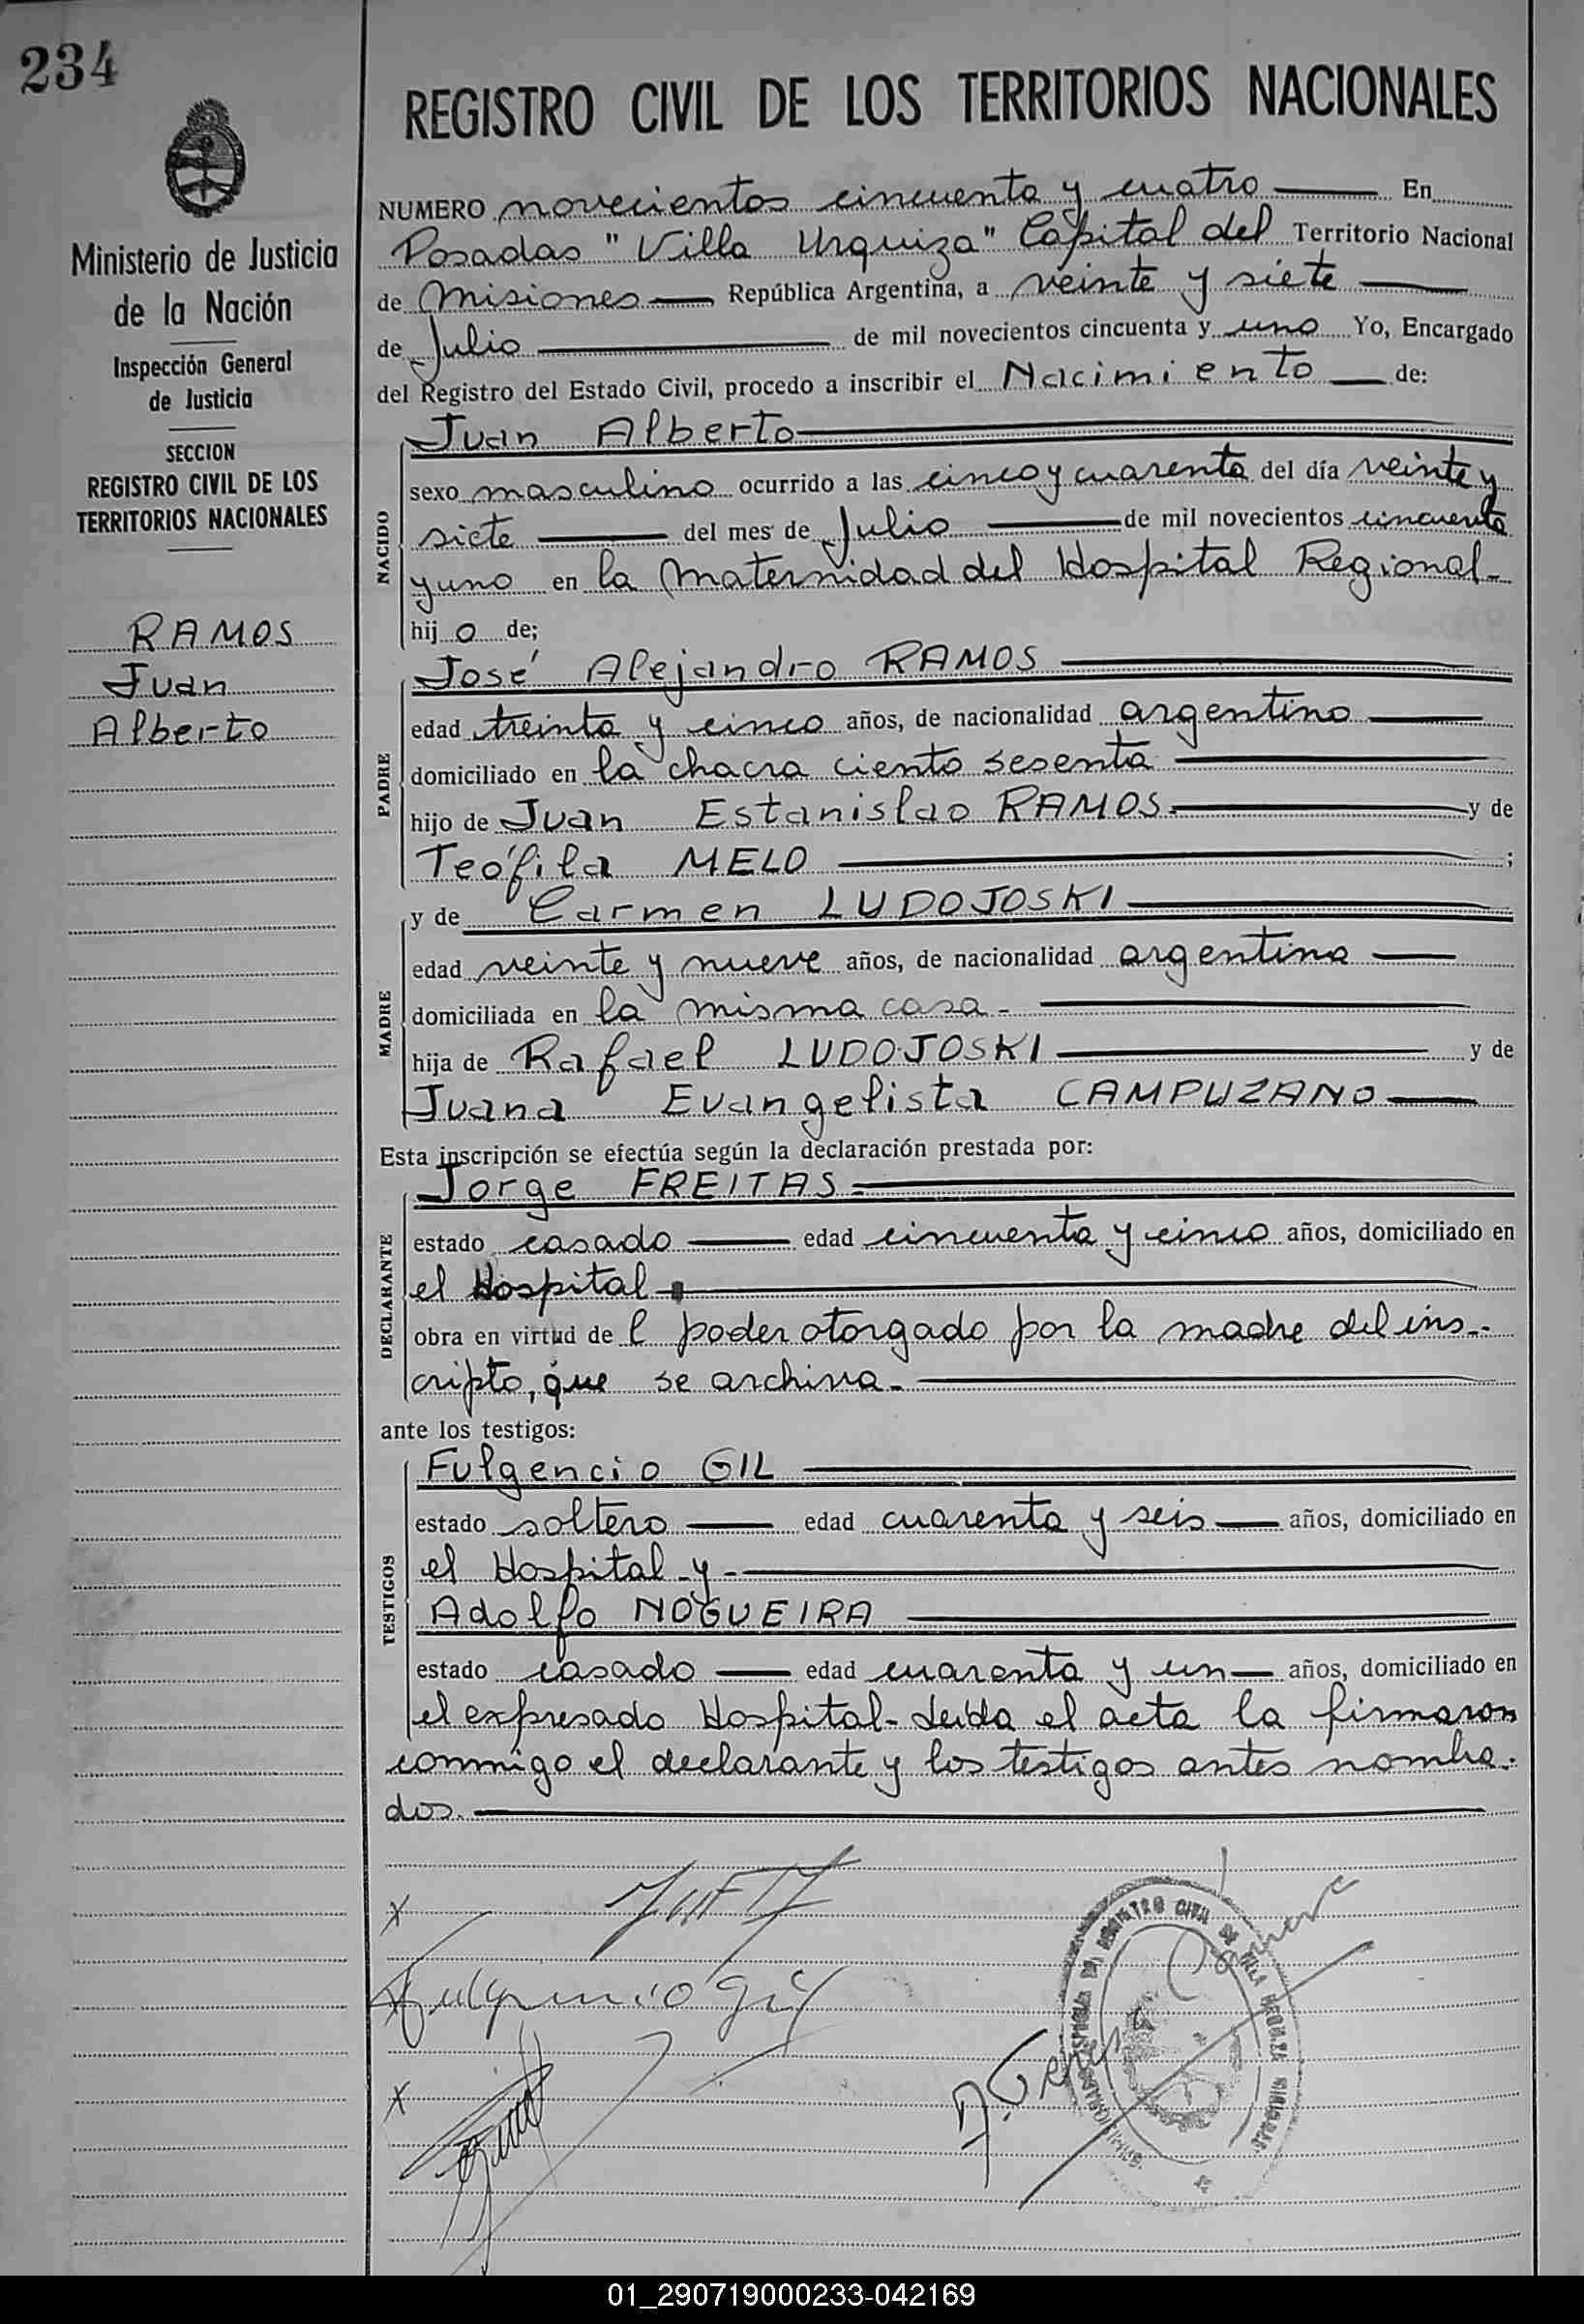 234
Ministerio de Justicia
de la Nación
Inspección General
de Justicia
SECCION
REGISTRO CIVIL DE LOS
TERRITORIOS NACIONALES
RAMOS
Juan
Alberto
REGISTRO CIVIL DE LOS TERRITORIOS NACIONALES
NUMERO novecientos cincuenta y cuatro En
Posadas "Villa Urquiza" Capital del Territorio Nacional
de Misiones República Argentina, a veinte y siete
de Julio de mil novecientos cincuenta y uno Yo, Encargado
del Registro del Estado Civil, procedo a inscribir el Nacimiento de:
NACIDO
Juan Alberto
sexo masculino ocurrido a las cinco y cuarenta del día veinte y
siete del mes de Julio de mil novecientos cincuenta
y uno en la Maternidad del Hospital Regional-
hijo de;
PADRE
José Alejandro RAMOS
edad treinta y cinco años, de nacionalidad argentino
domiciliado en la chacra ciento sesenta
hijo de Juan Estanislao RAMOS y de
Teófila MELO ;
MADRE
y de Carmen LUDOJOSKI
edad veinte y nueve años, de nacionalidad argentina
domiciliada en la misma casa-
hija de Rafael LUDOJOSKI y de
Juana Evangelista CAMPUZANO
Esta inscripción se efectúa según la declaración prestada por:
DECLARANTE
Jorge FREITAS
estado casado edad cincuenta y cinco años, domiciliado en
el Hospital
obra en virtud de l poder otorgado por la madre del ins-
cripto, que se archiva-
ante los testigos:
TESTIGOS
Fulgencio GIL
estado soltero edad cuarenta y seis años, domiciliado en
el Hospital-y-
Adolfo NOGUEIRA
estado casado edad cuarenta y un años, domiciliado en
el expresado Hospital-Leída el acta la firmaron
conmigo el declarante y los testigos antes nombra-
dos.
x
Fulgencio Gil
x
REGISTRO CIVIL DE VILLA URQUIZA MISIONES
01_290719000233-042169